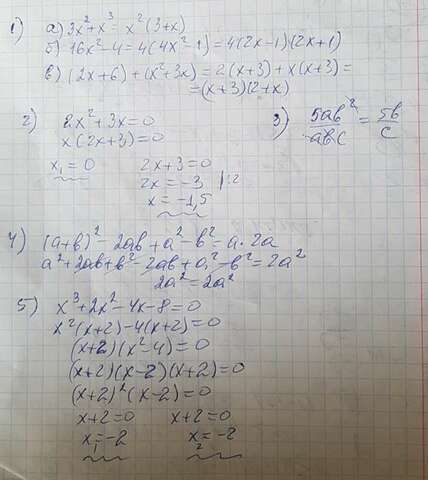 1) а) 3x²+x³= x²(3+x)
б) 16x²-4=4(4x²-1)=4(2x-1)(2x+1)
в) (2x+6)+(x²+3x)=2(x+3)+x(x+3)=
=(x+3)(2+x)
2) 2x²+3x=0
x(2x+3)=0
x₁=0 2x+3=0
2x=-3 |:2
x=-1,5
3) 5ab²/abc = 5b/c
4) (a+b)²-2ab+a²-b²=a·2a
a²+2ab+b²-2ab+a²-b²=2a²
2a²=2a²
5) x³+2x²-4x-8=0
x²(x+2)-4(x+2)=0
(x+2)(x²-4)=0
(x+2)(x-2)(x+2)=0
(x+2)²(x-2)=0
x+2=0 x+2=0
x₁=-2 x₂=-2